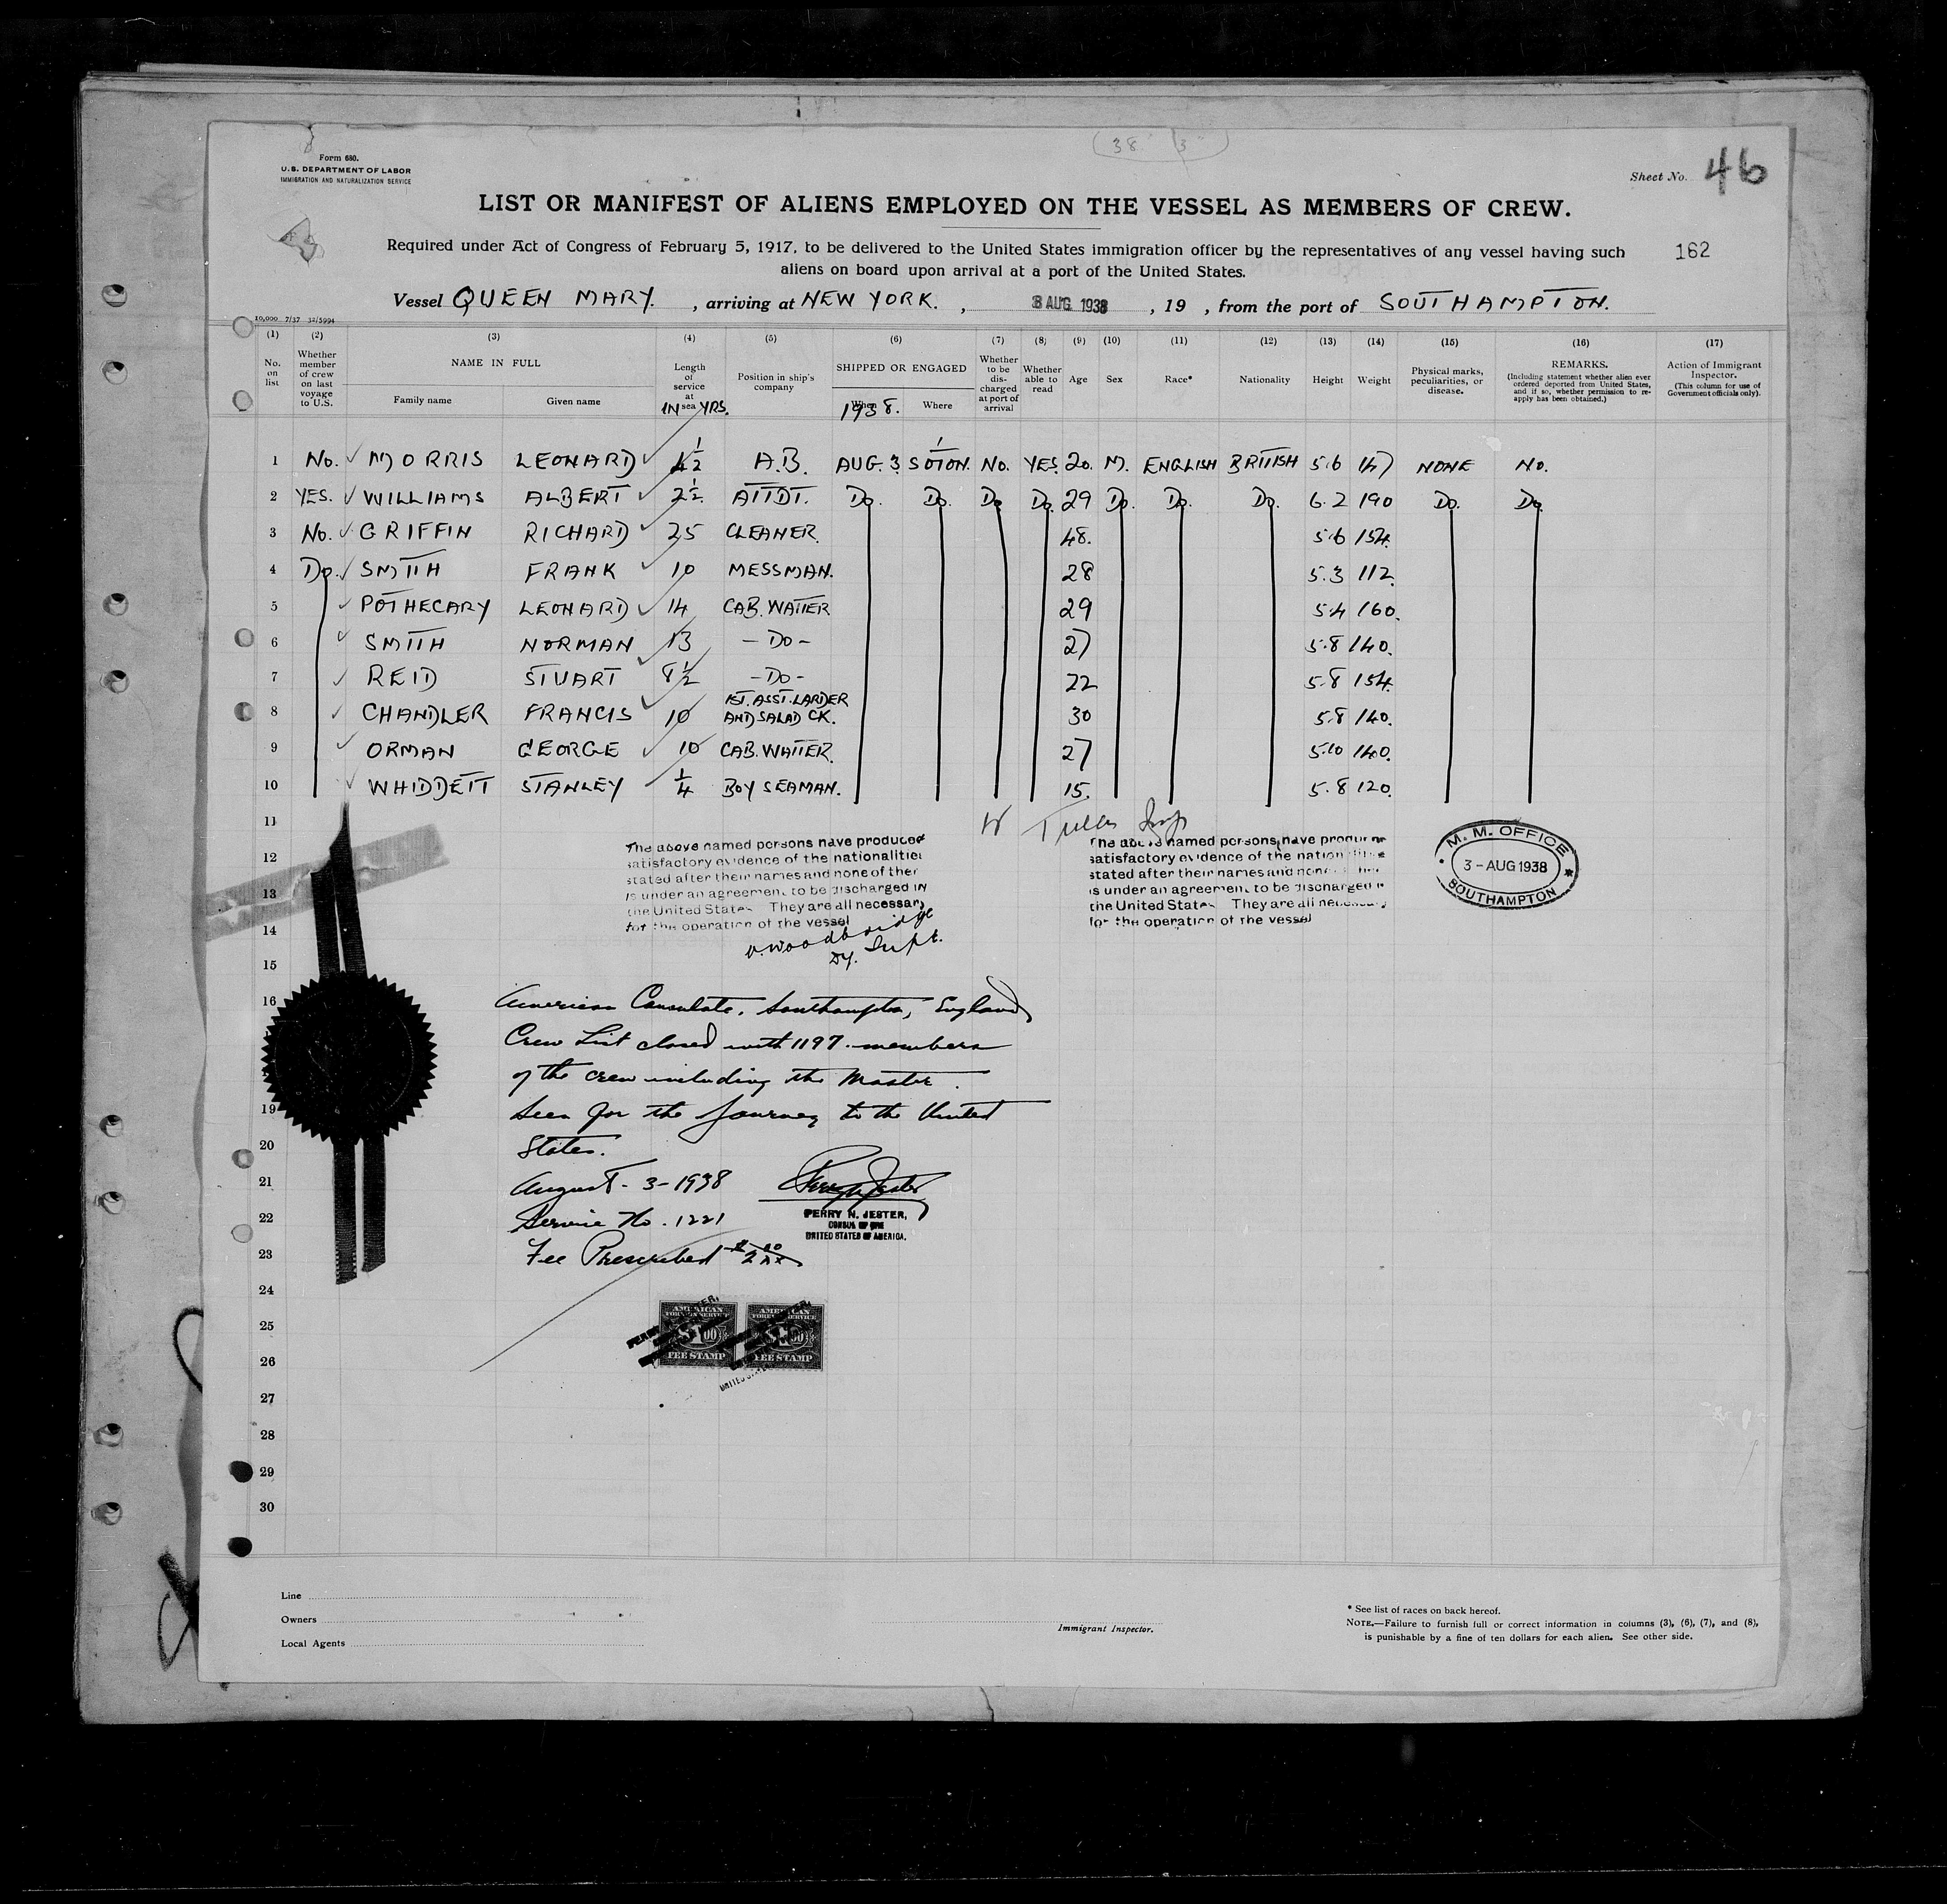 38 3
Form 680.
U.S. DEPARTMENT OF LABOR
IMMIGRATION AND NATURALIZATION SERVICE
Sheet No. 46
LIST OR MANIFEST OF ALIENS EMPLOYED ON THE VESSEL AS MEMBERS OF CREW.
Required under Act of Congress of February 5, 1917, to be delivered to the United States immigration officer by the representatives of any vessel having such
aliens on board upon arrival at a port of the United States.
162
Vessel QUEEN MARY. , arriving at NEW YORK. , 8 AUG 1938 , 19 , from the port of SOUTHAMPTON.
10,000 7/37 32/5994
(1) (2) (3) (4) (5) (6) (7) (8) (9) (10) (11) (12) (13) (14) (15) (16) (17)
No. on list
Whether member of crew on last voyage to U.S.
NAME IN FULL
Family name
Given name
Length of service at sea
IN YRS.
Position in ship's company
SHIPPED OR ENGAGED
When
1938.
Where
Whether to be discharged at port of arrival
Whether able to read
Age
Sex
Race*
Nationality
Height
Weight
Physical marks, peculiarities, or disease.
REMARKS.
(Including statement whether alien ever ordered deported from United States, and if so, whether permission to re-apply has been obtained.)
Action of Immigrant Inspector.
(This column for use of Government officials only).
1 No. MORRIS LEONARD 4½ A.B. AUG. 3 S'OTON. No. YES. 20. M. ENGLISH BRITISH 5.6 147 NONE No.
2 YES. WILLIAMS ALBERT 2½ ATTDT. Do. Do. Do. Do. 29 Do. Do. Do. 6.2 190 Do. Do.
3 No. GRIFFIN RICHARD 25 CLEANER. 48. 5.6 154.
4 Do. SMITH FRANK 10 MESSMAN. 28 5.3 112.
5 POTHECARY LEONARD 14 CAB. WAITER 29 5.4 160.
6 SMITH NORMAN 13 - Do - 27 5.8 140.
7 REID STUART 8½ - Do - 22 5.8 154.
8 CHANDLER FRANCIS 10 1ST. ASST. LARDER AND SALAD CK. 30 5.8 140.
9 ORMAN GEORGE 10 CAB. WAITER. 27 5.10 140.
10 WHIDDETT STANLEY ¼ BOY SEAMAN. 15. 5.8 120.
11
12
13
14
15
16
19
20
21
22
23
24
25
26
27
28
29
30
The above named persons have produced
satisfactory evidence of the nationalities
stated after their names and none of ther
is under an agreement to be discharged in
the United States They are all necessary
for the operation of the vessel
V. Woodbridge
Dy. Supt.
The above named persons have produced
satisfactory evidence of the nationalities
stated after their names and none of ther
is under an agreement to be discharged in
the United States They are all necessary
for the operation of the vessel
M. M. OFFICE
3-AUG 1938
SOUTHAMPTON
American Consulate, Southampton, England
Crew List closed with 1197 members
of the crew including the Master.
Seen for the journey to the United
States.
August - 3 - 1938
Service No. 1221
Fee Prescribed $2.00
Perry N. Jester
PERRY N. JESTER,
CONSUL OF THE
UNITED STATES OF AMERICA.
AMERICAN FOREIGN SERVICE $1.00 FEE STAMP
AMERICAN FOREIGN SERVICE $1.00 FEE STAMP
Line
Owners
Local Agents
Immigrant Inspector.
* See list of races on back hereof.
NOTE.—Failure to furnish full or correct information in columns (3), (6), (7), and (8),
is punishable by a fine of ten dollars for each alien. See other side.